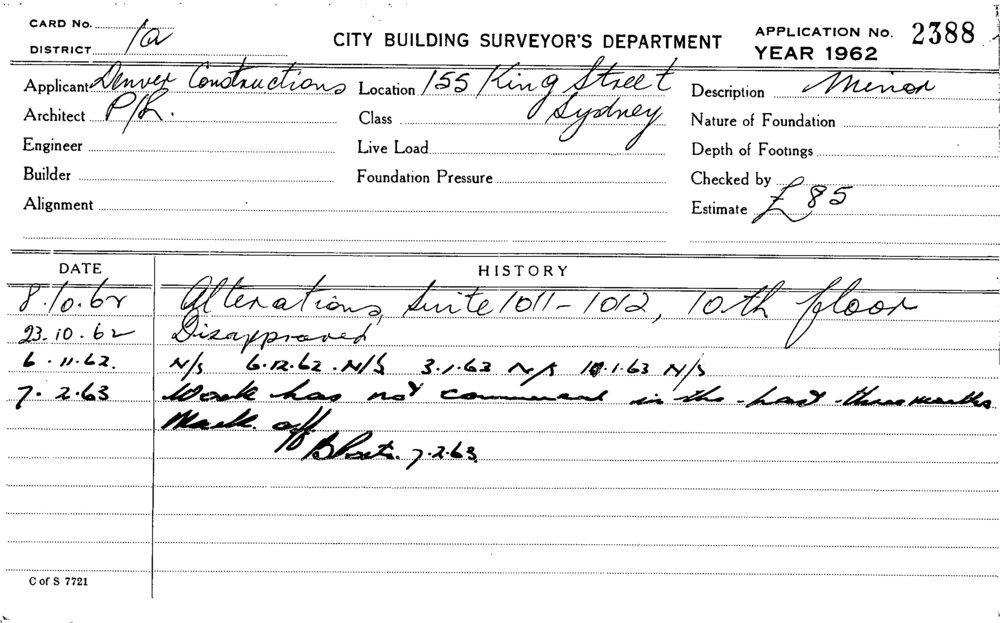 CARD No.
DISTRICT 1a
CITY BUILDING SURVEYOR'S DEPARTMENT
APPLICATION No. 2388
YEAR 1962
Applicant Denver Constructions Location 155 King Street Description Minor
Architect P/L. Class Sydney Nature of Foundation
Engineer Live Load Depth of Footings
Builder Foundation Pressure Checked by
Alignment Estimate £85
DATE HISTORY
8.10.62 Alterations, Suite 1011-1012, 10th floor
23.10.62 Disapproved
6.11.62. N/S 6.12.62. N/S 3.1.63 N/S 10.1.63 N/S
7.2.63 Work has not commenced in the last three months.
Mark off
7.2.63.
C of S 7721